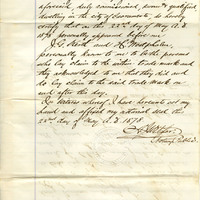 aforesaid, duly commissioned, sworn & qualified
dwelling in the city of Sacramento, do hereby
certify that on the 22nd day of May A.D.
1878 personally appeared before me
J. G. and H.
personally known to me to be the persons
who lay claim to the within trade mark and
they acknowledged to me that they did and
do lay claim to the said trade mark on
and after this day.
In witness whereof I have hereunto set my
hand and affixed my notarial seal this
22nd day of May A.D. 1878.
Notary Public